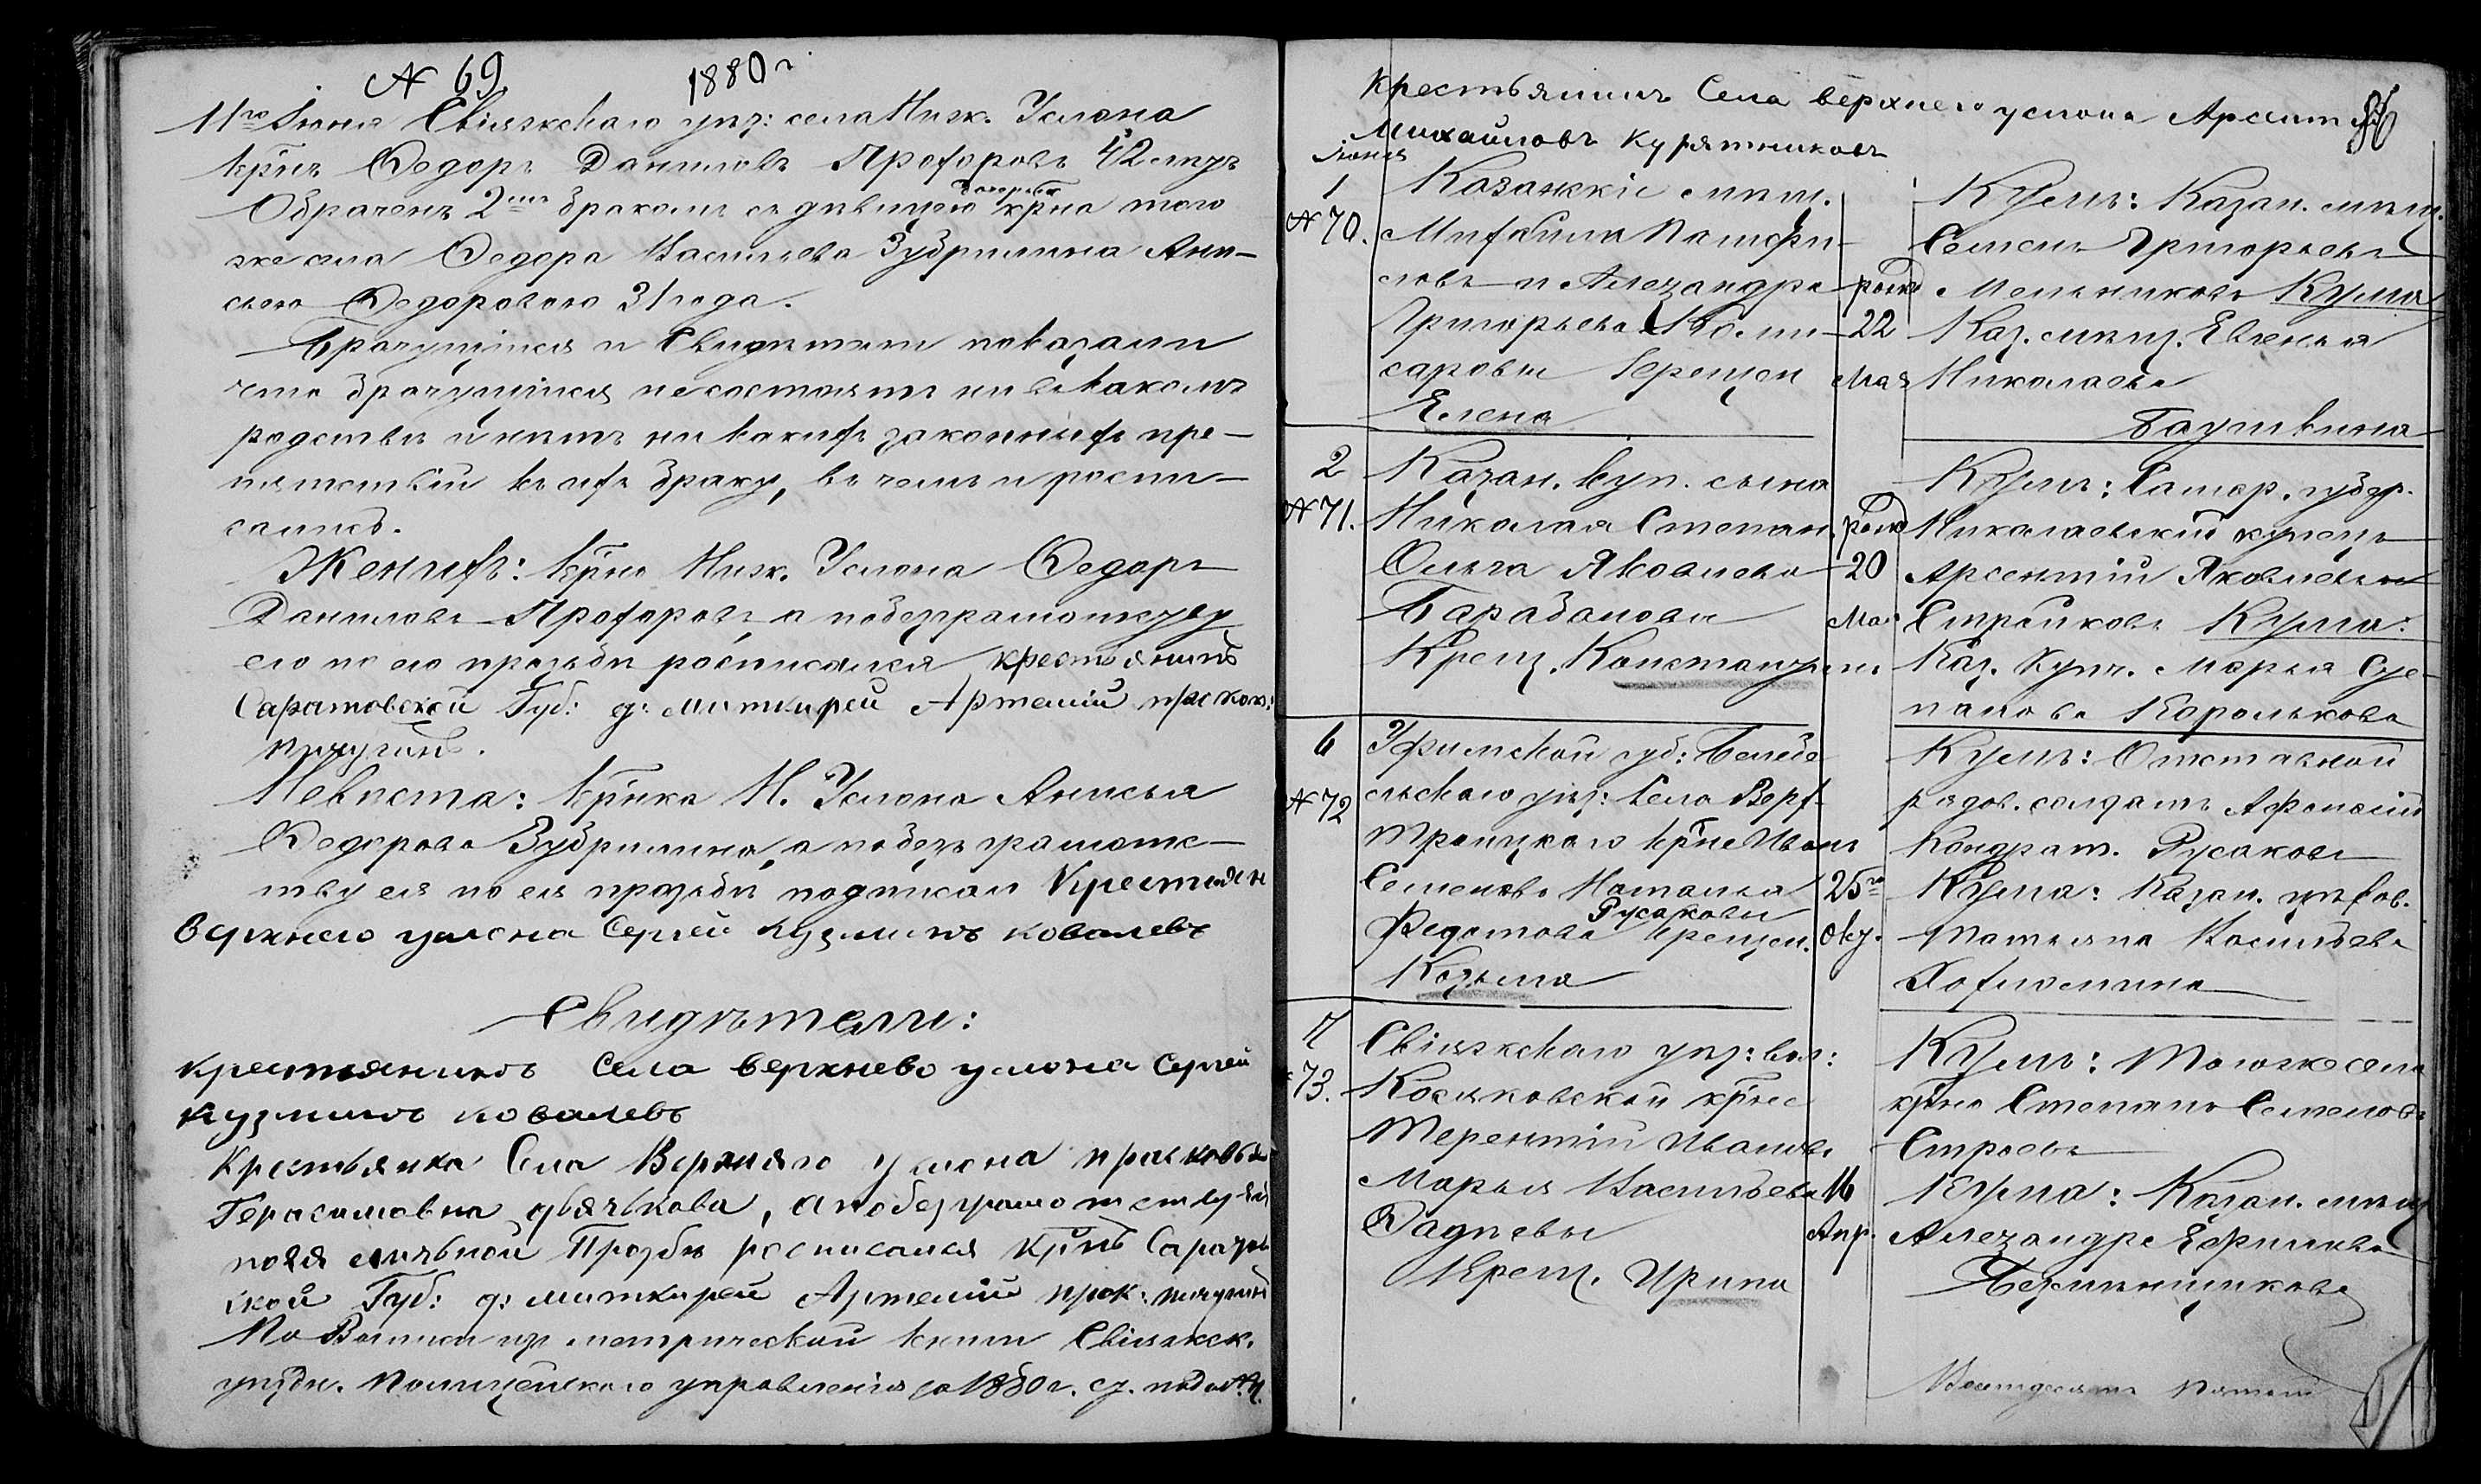 № 69. 1880 г.
11го Июня Свіяжскаго уѣз: села Ниж. Услона
кр̃нъ Ѳедоръ Даниловъ Прохоровъ 42 лѣтъ
Обраченъ 2мъ бракомъ съ дѣвицею дочерью кр̃на того
же села Ѳедора Васильева Зубрилина Ани-
сьею Ѳедоровою 31 года.
Брачущіися и Свидѣтели показали
что брачущіися несостоятъ ни въ какомъ
родствѣ и нѣтъ ни какихъ законныхъ пре-
пятствій къ ихъ браку, въ чемъ и распи-
сались.
Женихъ: кр̃нъ Ниж. Услона Ѳедоръ
Даниловъ Прохоровъ, а по безграмотству
его по его прозьбѣ росписался крестьянинъ
Саратовской Губ: д: миткирей Артемій прокоп:
пичугинъ.
Невѣста: кр̃нка Н. Услона Анисья
Ѳедорова Зубрилина, а по безъ грамотс-
тву ея по ея прозьбѣ подписал Крестьян
Верхнего услона Сергей кузминъ ковалевъ
Свидѣтели:
крестьянинъ Села верхнево услона Сергей
кузминъ ковалевъ
Крестьянка Села Верхняго услона прасковья
Герасимовна дьячкова, а по безграмотству ея
по ея личьной Прозбѣ росписался кр̃нъ Саратов
ской Губ: д: миткирей Артемій прок: пичугинъ
По Выписи из метрической книги Свіяжск.
уѣздн. Полицейскаго управленія за 1880 г.
Крестьянинъ Села верхнего услона Арсентий
Михайловъ Курятниковъ
86
Июня
1
№ 70.
Казанскіе мѣщ.
Михаилъ Памфи-
ловъ и Александра
Григорьева Коми-
саровы Крещен
Елена
рожд
22
Мая
Кумъ: Казан. мѣщ.
Семенъ Григорьевъ
Мельниковъ Кума
Каз. мѣщ. Евгенья
Николаева
Баушкина
2
№ 71.
Казан. куп. сына
Николая Степан.
Ольга Яковлева
Барабановы
Крещ. Константинъ
рожд
20
Мая
Кумъ: Самар. губер.
Николаевскій купецъ
Арсентій Яковлевъ
Стройковъ Кума:
Каз. Купч. Марья Сте-
панова Королькова
6
№ 72
Уфимской губ: Белебе
евскаго уѣз: Села Верх-
Троицкаго кр̃не Иванъ
Семеновъ Наталья
Федотова Русаковы крещен.
Козьма
25го
Окт.
Кумъ: Отставной
рядов. солдатъ Афонасій
Кондрат. Русаковъ
Кума: Казан. цѣхов.
Татьяна Васильева
Хохлюшина
7
№ 73.
Свіяжскаго уѣз: вол:
Косяковской кр̃не
Терентій Ивановъ
Марья Васильева
Фадѣевы
Крещ. Ирина
16
Апр.
Кумъ: Того же села
кр̃нъ Степанъ Семеновъ
Строевъ
Кума: Казан. мѣщ
Александра Ефимова
Восимдесятъ пятой